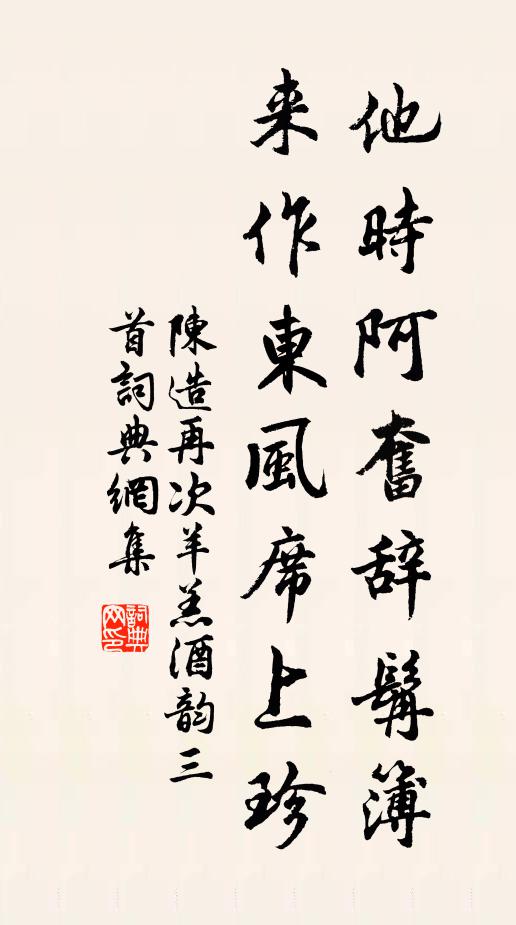 他時阿奮辞髯簿
来作東風席上珍
陳造再次羊羔酒韵三
首詞典網集
詞典网印